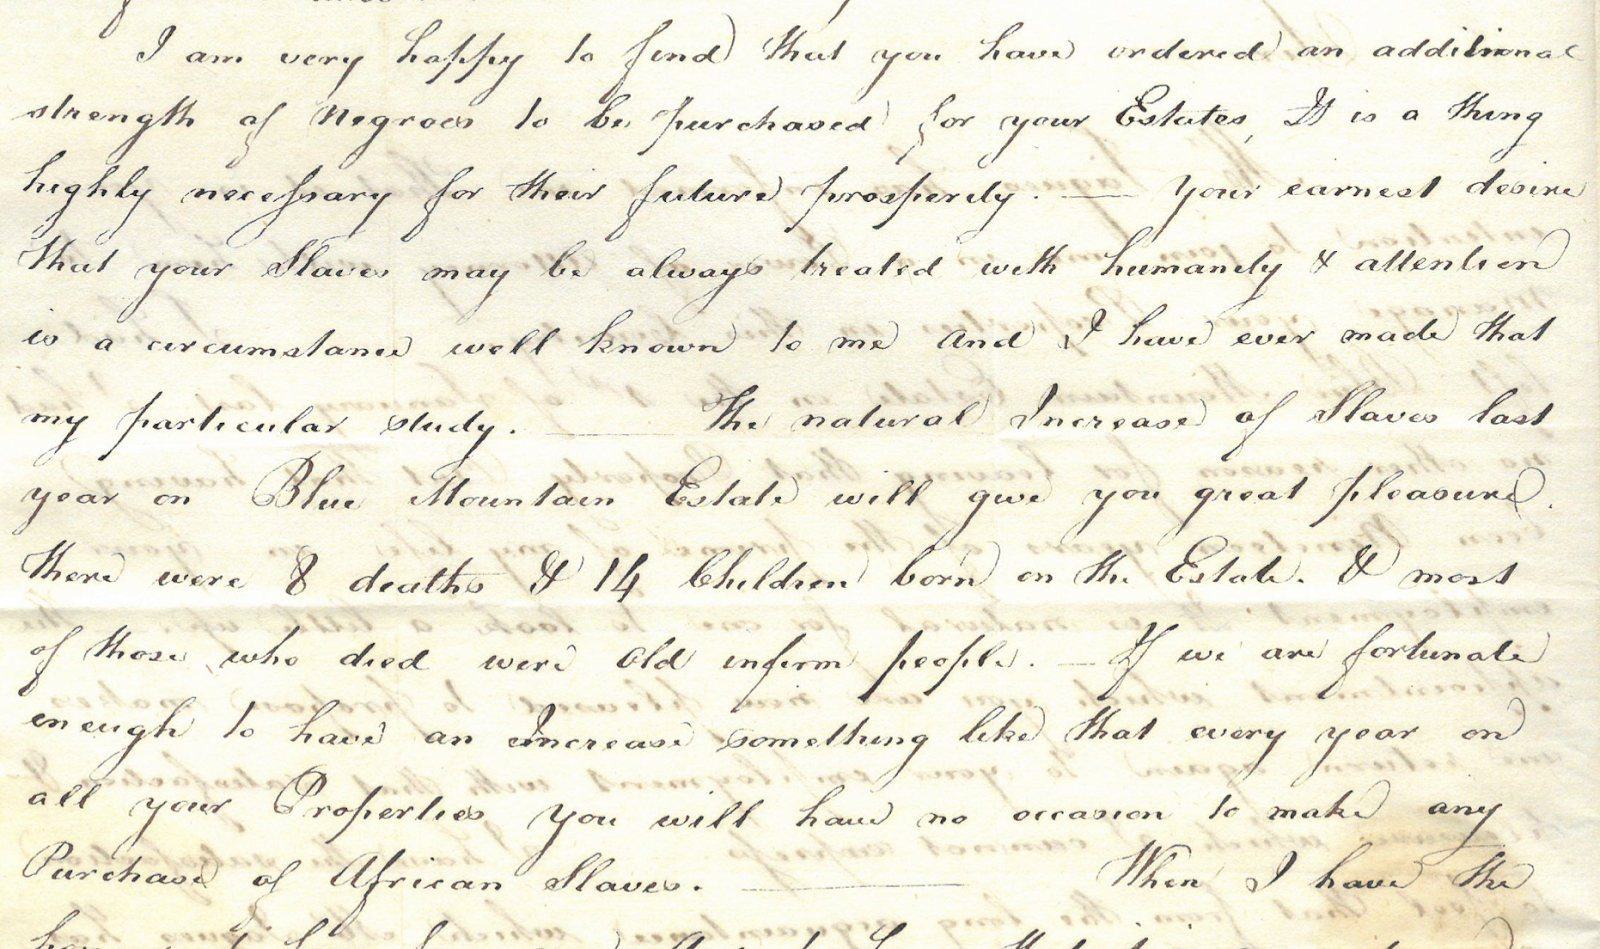 I am very happy to find that you have ordered an additional
strength of Negroes to be purchased for your Estates, It is a thing
highly necessary for their future prosperity. — Your earnest desire
that your Slaves may be always treated with humanity & attention
is a circumstance well known to me and I have ever made that
my particular study. — The natural Increase of Slaves last
year on Blue Mountain Estate will give you great pleasure.
There were 8 deaths & 14 Children born on the Estate. & most
of those who died were old infirm people. — If we are fortunate
enough to have an Increase something like that every year on
all your Properties you will have no occasion to make any
Purchase of African Slaves. — When I have the